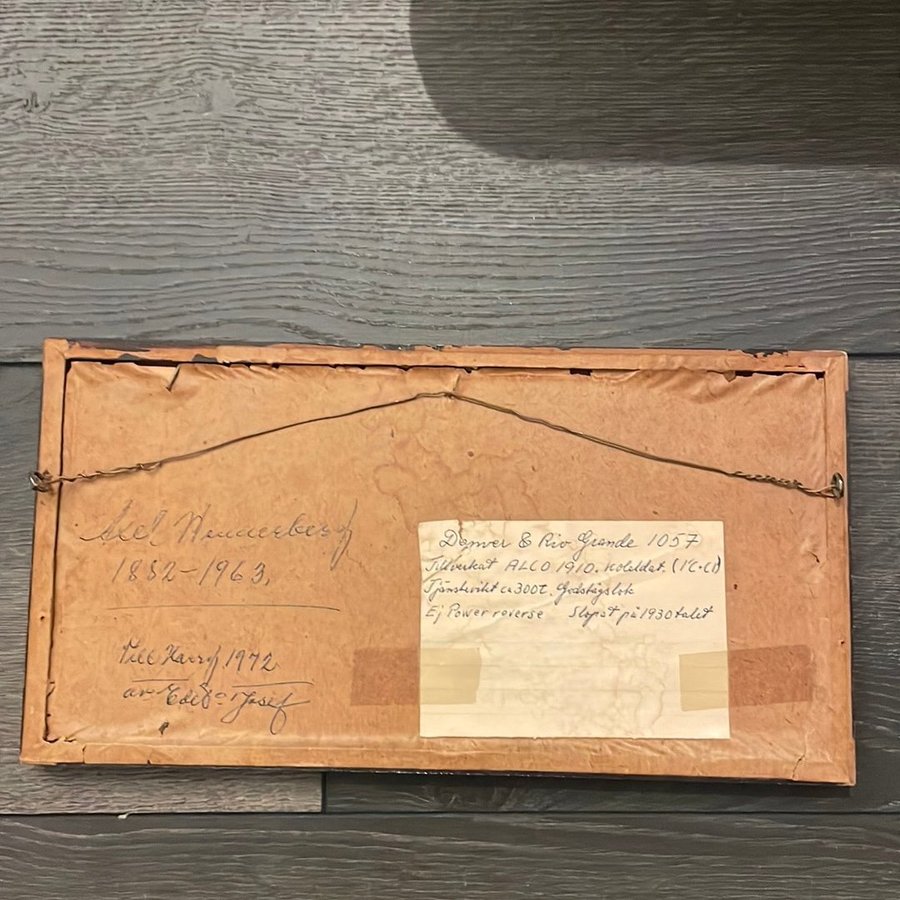 Axel Wennerberg
1882-1963.
Till Harry 1972
av Edit o Josef
Denver & Rio Grande 1057
Tillverkat ALCO 1910. Koleldat. (1'C+C1')
Tjänstevikt ca 300t. Godstågslok
Ej Power reverse Slopat på 1930talet